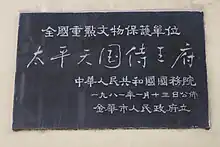 全國重點文物保護單位
太平天国侍王府
中華人民共和國國務院
一九八八年一月十三日公佈
金華市人民政府立